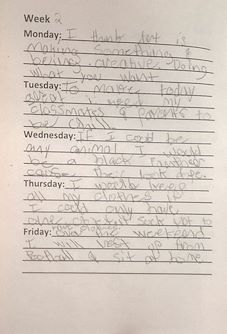 Week 2
Monday: I think Art is
making something &
being creative Doing
what you want
Tuesday: To make today
great I need my
classmates & parents to
be
Wednesday: If I could be
any animal I would
be a black Panther
cause they look
Thursday: I would keep
all my clothes if
I could only have
one
Friday: Over the weekend
I will rest up from
football & sit at home